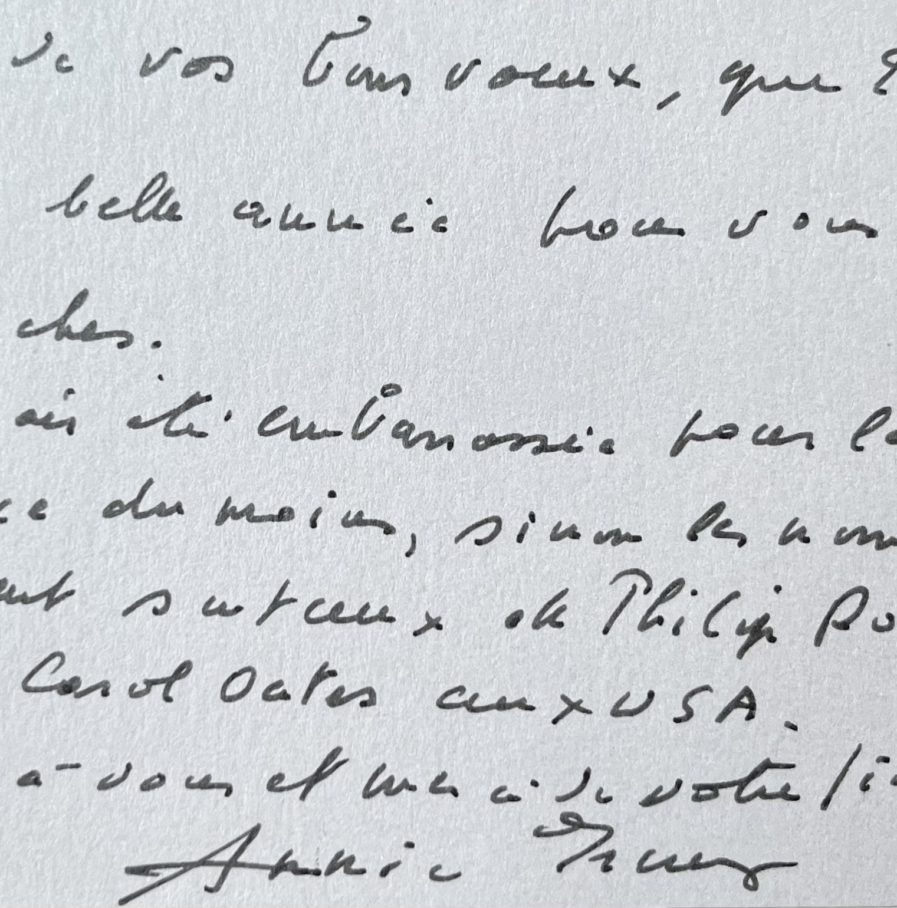 de vos bons voeux, que
belle année pour vous
ches.
ais été embarrassée pour l
ce du moins, sinon les nom
ent surtout ceux de Philip Ro
Carol Oates aux USA.
à vous et merci de votre
Annie Ernaux